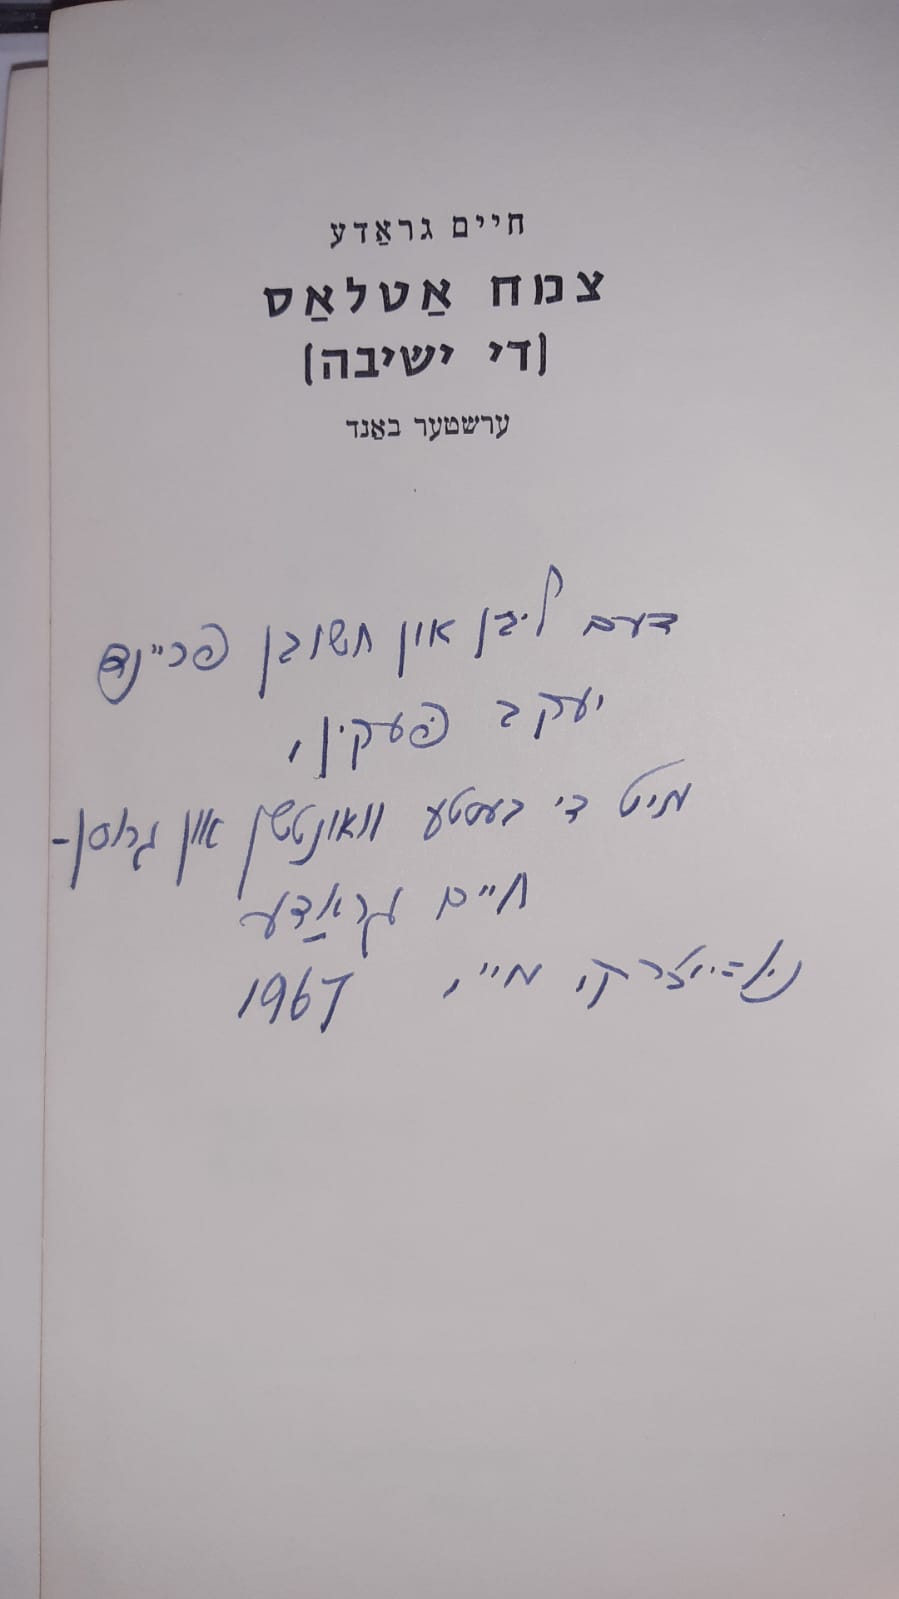 חיים גראַדע
צמח אַטלאַס
(די ישיבה)
ערשטער באַנד
דעם ליבן און חשובן פריינד
יעקב פּעקין,
מיט די בעסטע וואונטשן און גרוסן-
חיים גראַדע
ניו=יאָרק, מיי, 1967